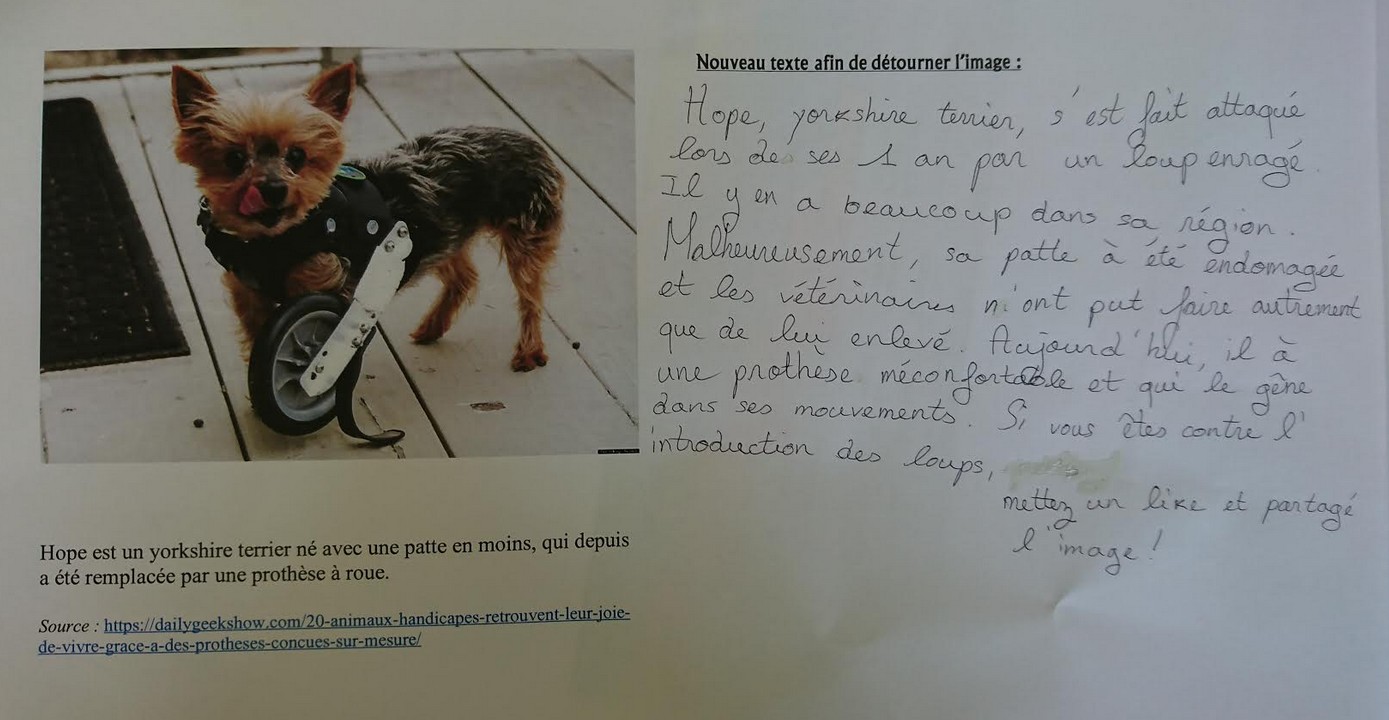 Nouveau texte afin de détourner l'image :
Hope, yorkshire terrier, s'est fait attaqué
lors de ses 1 an par un loup enragé.
Il y en a beaucoup dans sa région.
Malheureusement, sa patte à été endomagée
et les vétérinaires n'ont put faire autrement
que de lui enlevé. Aujourd'hui, il à
une prothèse méconfortable et qui le gêne
dans ses mouvements. Si vous êtes contre l'
introduction des loups,
mettez un like et partagé
l'image !
Hope est un yorkshire terrier né avec une patte en moins, qui depuis
a été remplacée par une prothèse à roue.
Source : https://dailygeekshow.com/20-animaux-handicapes-retrouvent-leur-joie-
de-vivre-grace-a-des-protheses-concues-sur-mesure/